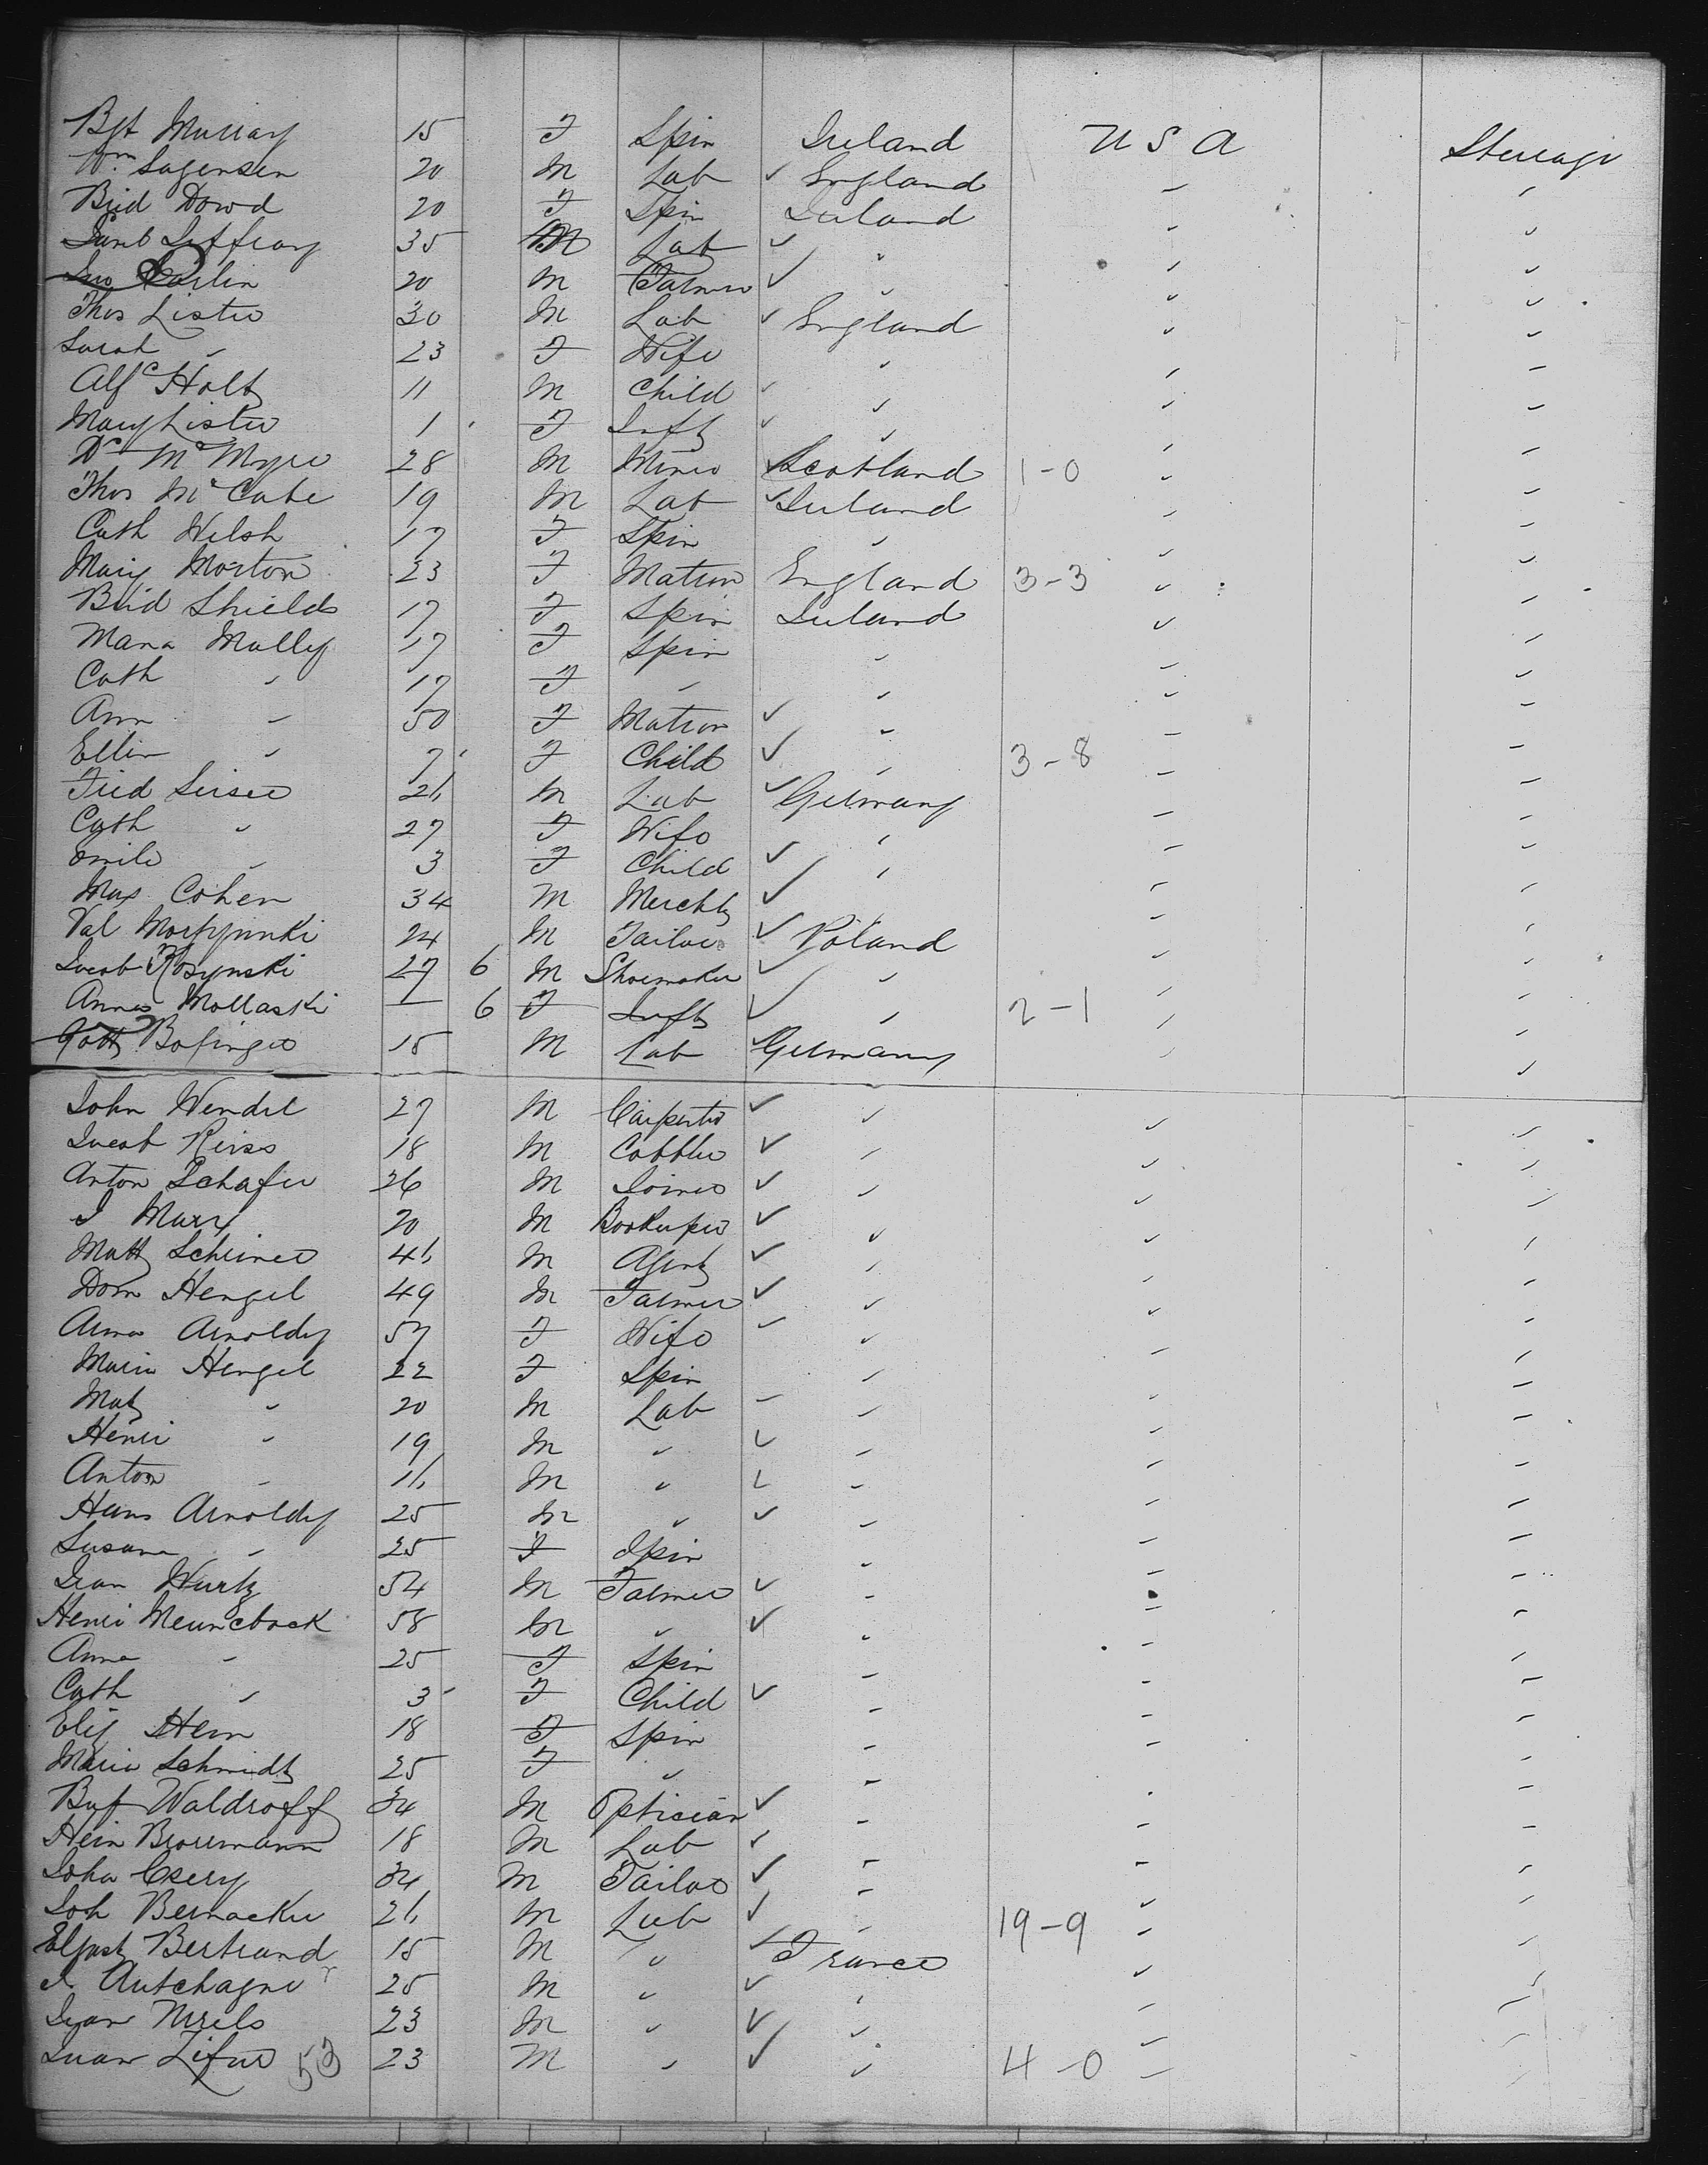 Bgt Murray 15 F Spin Ireland U S A Steerage
Wm Sagensen 20 M Lab ✓ England " "
Brid Dowd 20 F Spin Ireland " "
Jeffray 35 M Lab ✓ " " "
Carlin 20 M Farmer ✓ " " "
Thos Lister 30 M Lab ✓ England " "
Sarah " 23 F Wife " " "
Alfd Holt 11 M Child ✓ " " "
Mary Lister 1 F Inft ✓ " " "
Dd 28 M Miner ✓ Scotland 1-0 " "
Thos McCabe 19 M Lab ✓ Ireland " "
Cath Welsh 17 F Spin " " "
Mary Morton 23 F Matron England 3-3 " "
Brid Shields 17 F Spin Ireland " "
Maria Mally 17 F Spin " " "
Cath " 17 F " " " "
Ann " 50 F Matron ✓ " " "
Ellen " 7 F Child ✓ " 3-8 " "
Fred 26 M Lab ✓ Germany " "
Cath " 27 F Wife " " "
Emile " 3 F Child ✓ " " "
Max Cohen 34 M Mercht ✓ " "
Val 24 M Tailor ✓ Poland " "
Jacob Rosynski 27 6 M Shoemaker ✓ " " "
Anna Mollaski — 6 F Inft ✓ " 2-1 " "
Gott Bofinger 15 M Lab ✓ Germany " "
John Wendel 27 M Carpenter ✓ " " "
Jacob Reiss 18 M Cobbler ✓ " " "
Anton Schafer 26 M Joiner ✓ " " "
J Marx 20 M Bookeeper ✓ " " "
Matt Schiner 46 M Agent ✓ " " "
Dom Hengel 49 M Farmer ✓ " " "
Anna Arnoldy 57 F Wife ✓ " " "
Maria Hengel 22 F Spin " " "
Mat " 20 M Lab ✓ " " "
Henri " 19 M " ✓ " " "
Anton " 16 M " ✓ " " "
Hans Arnoldy 25 M " ✓ " " "
Susana " 25 F Spin " " "
Jean Wurtz 54 M Farmer ✓ " " "
Henri 58 M " ✓ " " "
Anna " 25 F Spin " " "
Cath " 3 F Child ✓ " " "
Eliz Hern 18 F Spin " " "
Maria Schmidt 25 F " " " "
Waldroff 34 M Optician ✓ " " "
Hein Brormann 18 M Lab ✓ " " "
Csery 34 M Tailor ✓ " " "
Joh Bernacker 26 M Lab ✓ " 19-9 " "
Bertrand 15 M " ✓ France " "
J. Autchagne 25 M " ✓ " " "
Jean 23 M " ✓ " " "
Jean 53 23 M " ✓ " 4-0 " "